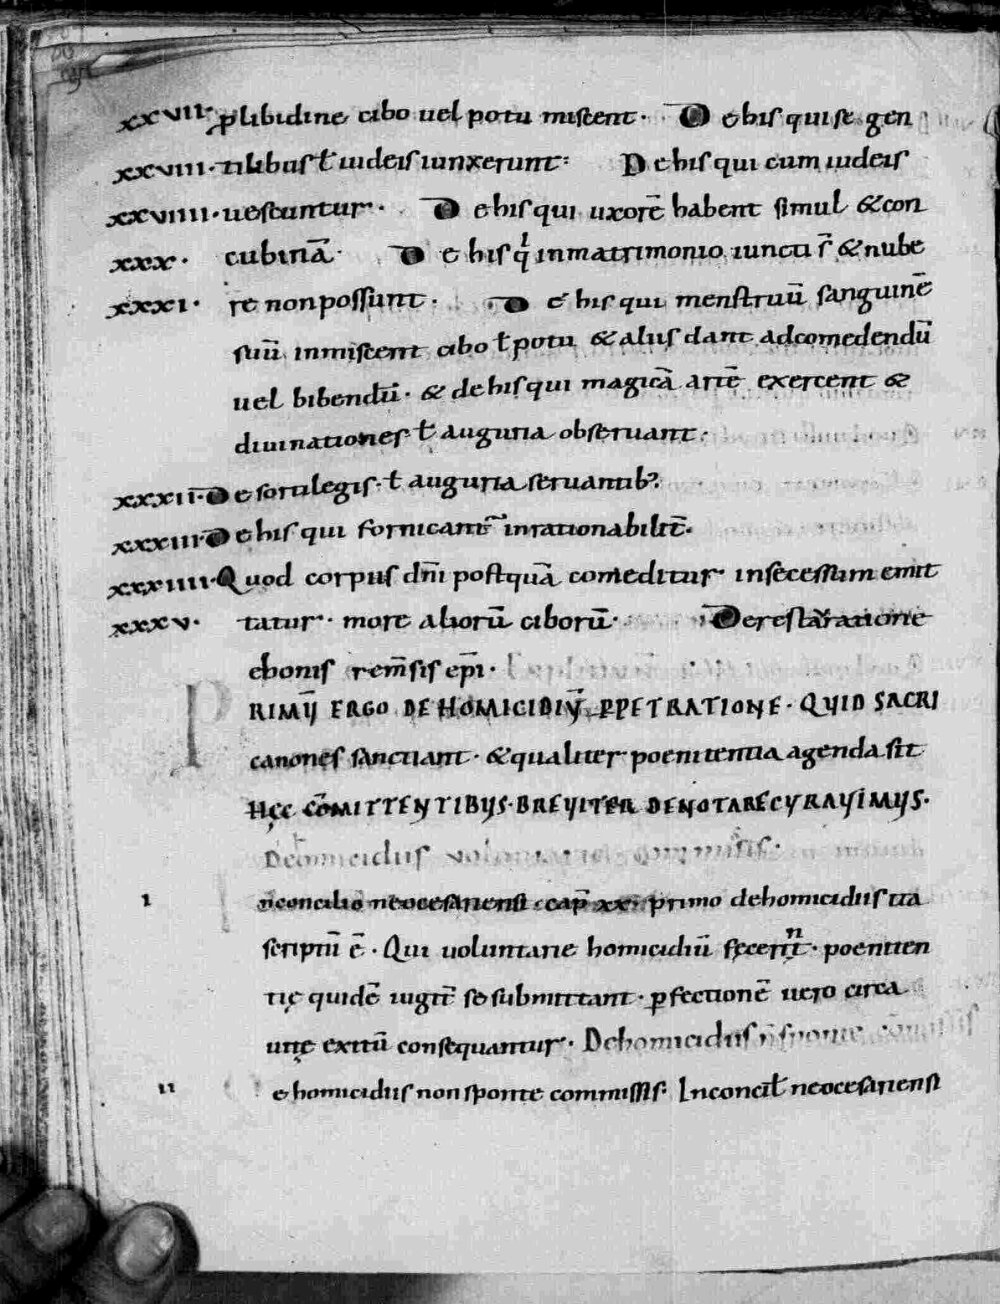 XXVII. ꝓ libidine cibo uel potu miscent. De his qui se gen
XXVIII. tilibus ł iudeis iunxerunt: De his qui cum iudeis
XXVIIII. uescuntur. De his qui uxorē habent simul & con
XXX. cubinā. De his qⁱ in matrimonio iuncti s̄ & nube
XXXI. re non possunt. De his qui menstruū sanguinē
suū inmiscent cibo ł potu & aliis dant ad comedendū
uel bibendū. & de his qui magicā artē exercent &
diuinationes ł auguria obseruant.
XXXII. De sortilegis. ł auguria seruantibꝫ.
XXXIII. De his qui fornicant̄ inrationabilit̄.
XXXIIII. Quod corpus dn̄i postquā comeditur in secessum emit
XXXV. tatur. more aliorū ciborū. De restauratione
ebonis remn̄sis ep̄i.
PRIMŪ ERGO DE HOMICIDIŪ ꝑPETRATIONE. QUID SACRI
canones sanctiant. & qualiter poenitentia agenda sit
HĘC CŌMITTENTIBUS. BREUITER DENOTARE CURAUIMUS.
De homicidiis uoluntarie commissis.
I In concilio neocesariensi cap̄ xxi primo de homicidiis ita
scriptū ē. Qui uoluntarie homicidiū fecerint. poeniten
tię quidē iugit̄ se submittant. ꝑfectionē uero circa
uitę exitū consequantur. De homicidiis n̄ sponte cōmissis
II De homicidiis non sponte commissis. In concil̄ neocesariensi